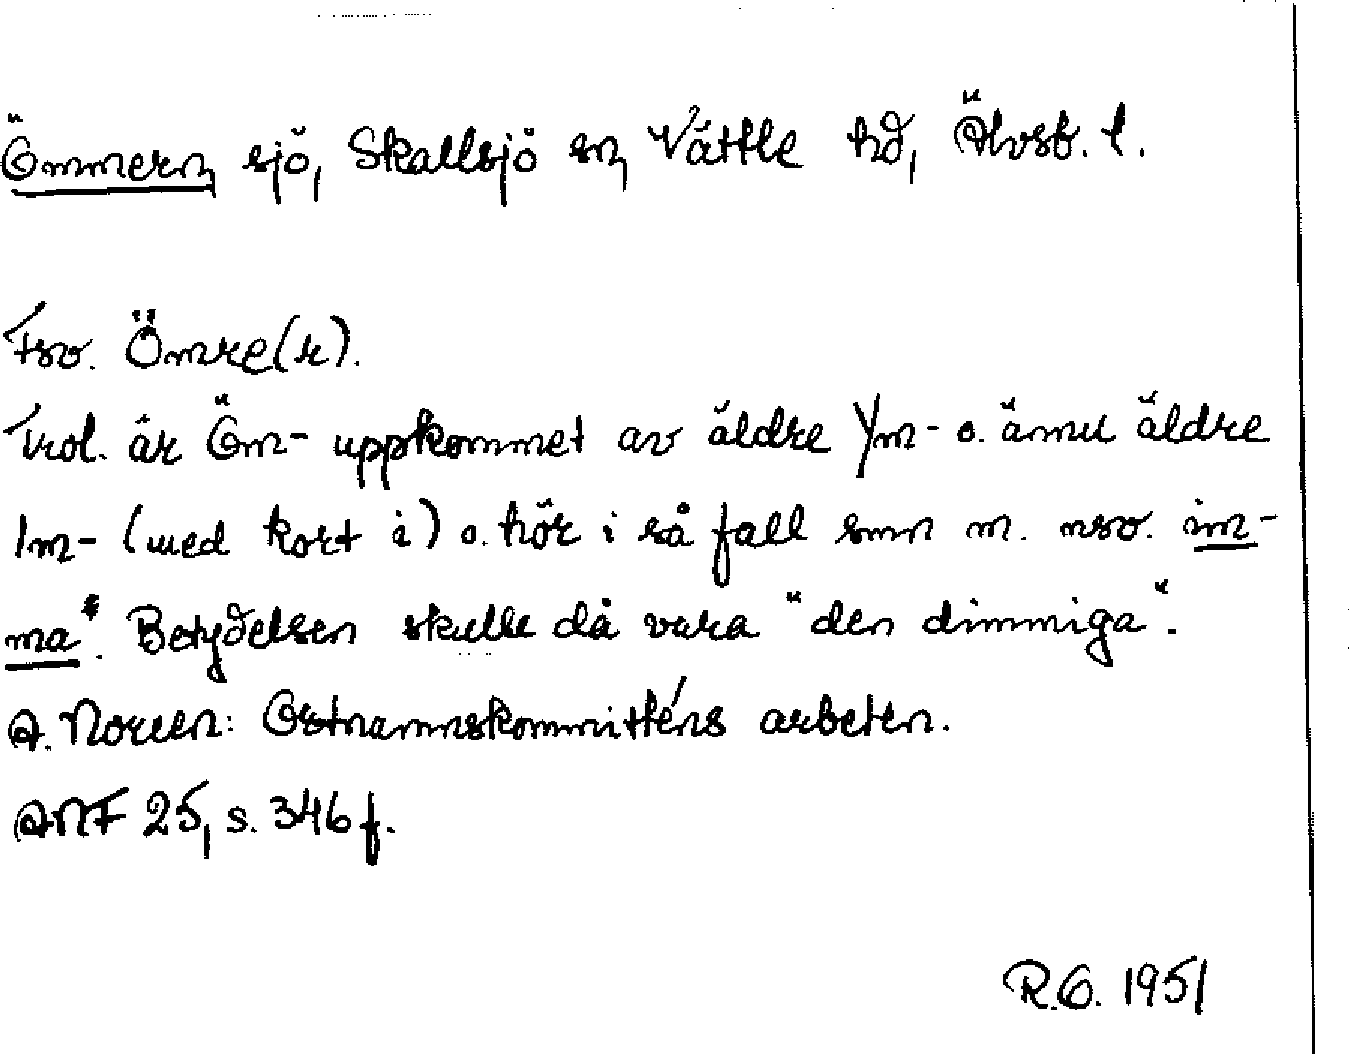 Ömmern sjö, Skallsjö sn, Vättle hd, Älvsb. l.
Fsv. Ömre(r).
Trol. är Öm- uppkommet av äldre Ym- o. ännu äldre
Im- (med kort i) o. hör i så fall smn m. nsv. im-
ma". Betydelsen skulle då vara "den dimmiga".
A. Noreen: Ortnamnskommitténs arbeten.
ANF 25, s. 346 f.
R.O. 1951